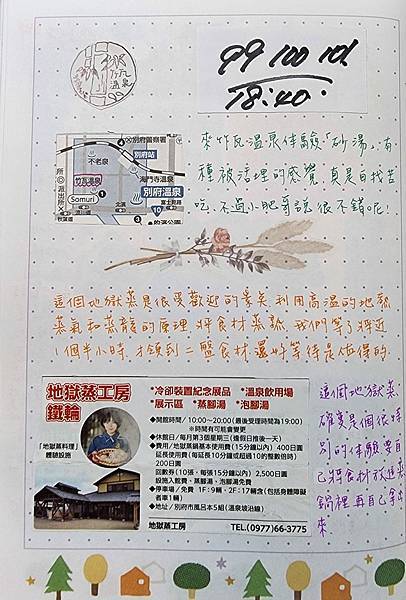 竹瓦
温泉
99
99 100 101
18:40.
來竹瓦溫泉体驗「砂湯」,有
種被活埋的感覺,真是自找苦
吃,不過小肥哥說很不錯呢!
別府警察署
不老泉
別府駅
海門寺温泉
竹瓦温泉
別府温泉
Somuri
北浜
富士見通
流川通
秋葉通
的ヶ浜公園
這個地獄蒸是很受歡迎的景點,利用高溫的地熱
蒸氣和蒸籠的原理,將食材蒸熟,我們等了將近
1個半小時,才領到二盤食材,還好等待是值得的.
地獄蒸工房
鐵輪
「地獄蒸料理」
體驗設施
•冷卻裝置紀念展品 •溫泉飲用場
•展示區 •蒸腳湯 •泡腳湯
◆開館時間/10:00~20:00(最後受理時間為19:00)
※時間有可能會變更
◆休館日/每月第3個星期三(逢假日推後一天)
◆費用/地獄蒸鍋基本使用費(15分鐘以內) 400日圓
延長使用費(每延長10分鐘或超過10的整數倍時)
200日圓
回數券(10張,每張15分鐘以內) 2,500日圓
設施入館費、蒸腳湯、泡腳湯免費
◆停車場/免費 1F:9輛、2F:17輛含(包括身體障礙
者車1輛)
◆地址/別府市風呂本5組(溫泉坡沿線)
地獄蒸工房 TEL.(0977)66-3775
這個地獄蒸
確實是個很特
別的体驗,要自
己將食材放進蒸
鍋裡再自己拿出
來